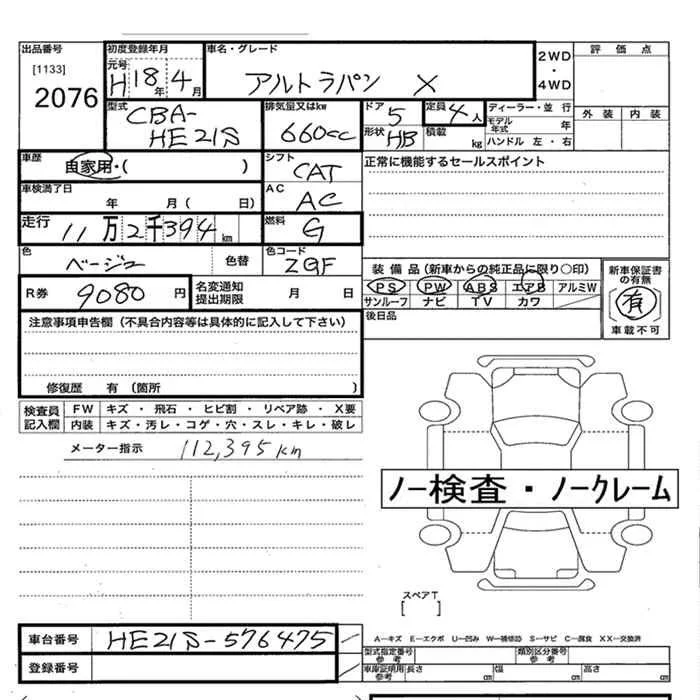 出品番号 初度登録年月 車名・グレード 2WD・4WD 評価点
[1133] 元号 H 18年 4月 アルトラパン X
2076
型式 CBA-HE21S 排気量又はkw 660cc ドア 5 定員 4人 ディーラー・並行 外装 内装
形状 HB 積載 kg モデル年式 年
ハンドル 左・右
車歴 自家用・( ) シフト CAT 正常に機能するセールスポイント
車検満了日 年 月( 日) AC AC
走行 11万2千394km 燃料 G
色 ベージュ 色替 色コード ZGF 装備品(新車からの純正品に限り○印) 新車保証書の有無
R券 9080円 名変通知提出期限 月 日 PS PW ABS エアB アルミW 有
サンルーフ ナビ TV カワ
車載不可
注意事項申告欄(不具合内容等は具体的に記入して下さい) 後日品
修復歴 有(箇所 )
検査員記入欄 FW キズ・飛石・ヒビ割・リペア跡・X要
内装 キズ・汚レ・コゲ・穴・スレ・キレ・破レ
メーター指示 112,395km
ノー検査・ノークレーム
スペアT
[ ]
車台番号 HE21S-576475 A―キズ E―エクボ U―凹み W―補修跡 S―サビ C―腐食 XX―交換済
登録番号 型式指定番号参考 類別区分番号参考
車庫証明用参考 長さ cm 幅 cm 高さ cm